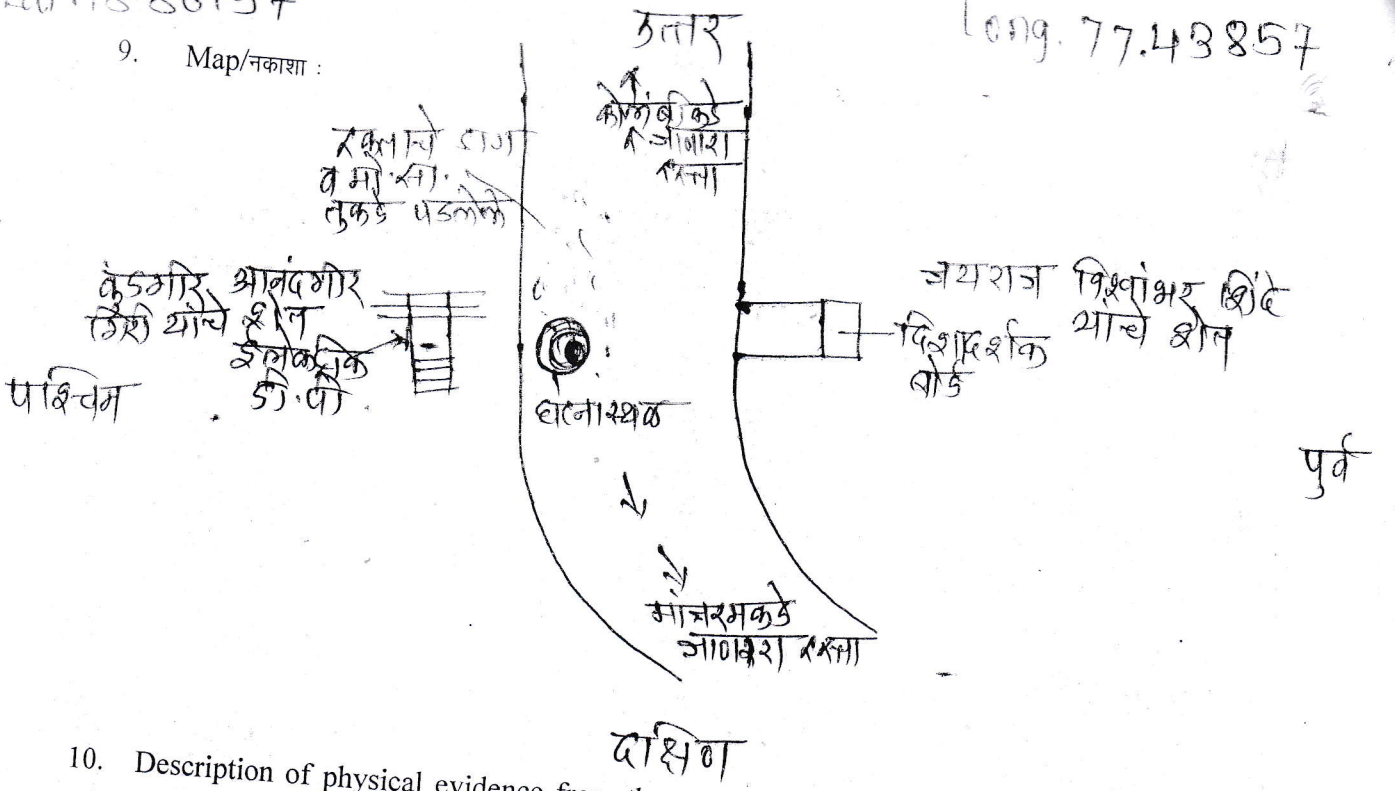 Long. 77.43857
9. Map/नकाशा :
उत्तर
कोलंबीकडे
जाणारा
रस्ता
रक्ताचे डाग
व मो.सा.
तुकडे पडलेले
कुंडगीर आनंदगीर
गिरी यांचे शेत
ईलेक्ट्रीक
डी.पी.
जयराज विश्वांभर शिंदे
यांचे शेत
दिशादर्शक
बोर्ड
पश्चिम
घटनास्थळ
पुर्व
मांजरमकडे
जाणारा रस्ता
दक्षिण
10. Description of physical evidence